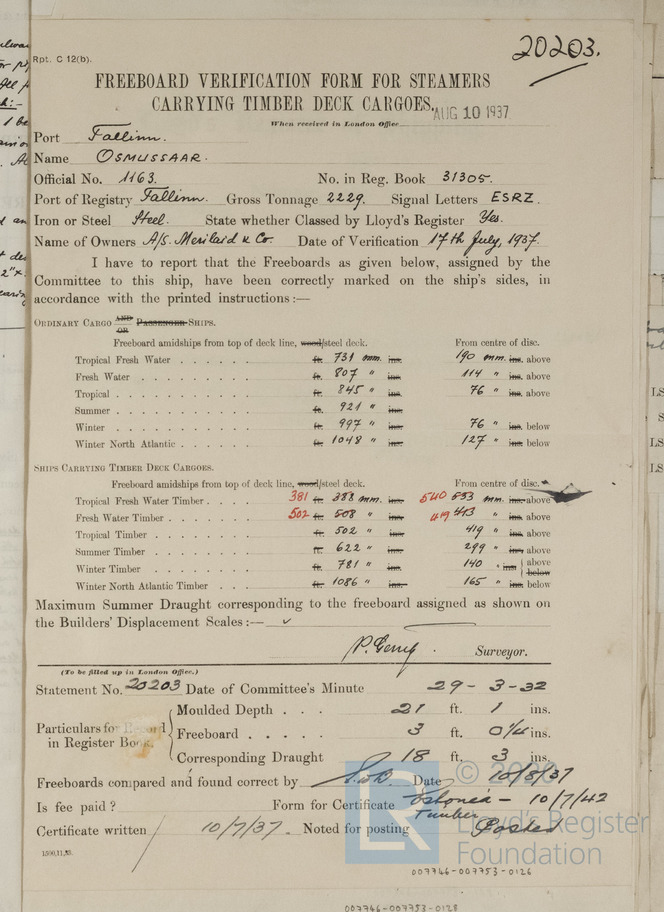 20203.
Rpt. C 12(b).
FREEBOARD VERIFICATION FORM FOR STEAMERS
CARRYING TIMBER DECK CARGOES.
AUG 10 1937
When received in London Office
Port Tallinn.
Name OSMUSSAAR.
Official No. 1163. No. in Reg. Book 31305.
Port of Registry Tallinn. Gross Tonnage 2229. Signal Letters ESRZ.
Iron or Steel Steel. State whether Classed by Lloyd's Register Yes.
Name of Owners A/S. Merilaid & Co. Date of Verification 17th July, 1937.
I have to report that the Freeboards as given below, assigned by the
Committee to this ship, have been correctly marked on the ship's sides, in
accordance with the printed instructions :—
ORDINARY CARGO AND OR PASSENGER SHIPS.
Freeboard amidships from top of deck line, wood/steel deck. From centre of disc.
Tropical Fresh Water . . . . . . ft. 731 mm. ins. 190 mm. ins. above
Fresh Water . . . . . . . . ft. 807 " ins. 114 " ins. above
Tropical . . . . . . . . . ft. 845 " ins. 76 " ins. above
Summer . . . . . . . . . ft. 921 " ins.
Winter . . . . . . . . . ft. 997 " ins. 76 " ins. below
Winter North Atlantic . . . . . ft. 1048 " ins. 127 " ins. below
SHIPS CARRYING TIMBER DECK CARGOES.
Freeboard amidships from top of deck line, wood/steel deck. From centre of disc.
Tropical Fresh Water Timber . . . . 381 ft. 388 mm. ins. 540 533 mm. ins. above
Fresh Water Timber . . . . . . 502 ft. 508 " ins. 419 413 " ins. above
Tropical Timber . . . . . . . ft. 502 " ins. 419 " ins. above
Summer Timber . . . . . . . ft. 622 " ins. 299 " ins. above
Winter Timber . . . . . . . ft. 781 " ins. 140 " ins. above below
Winter North Atlantic Timber . . . ft. 1086 " ins. 165 " ins. below
Maximum Summer Draught corresponding to the freeboard assigned as shown on
the Builders' Displacement Scales :—
Surveyor.
(To be filled up in London Office.)
Statement No. 20203 Date of Committee's Minute 29-3-32
Moulded Depth . . . 21 ft. 1 ins.
Particulars for Record in Register Book.
Freeboard . . . . . 3 ft. 0¼ ins.
Corresponding Draught 18 ft. 3 ins.
Freeboards compared and found correct by Date 10/8/37
Is fee paid ? Form for Certificate Estonia - 10/7/42
Timber
Certificate written 10/7/37. Noted for posting Posted
1500,11,35.
© 2020
Lloyd's Register
Foundation
LR
007746-007753-0126
007746-007753-0128